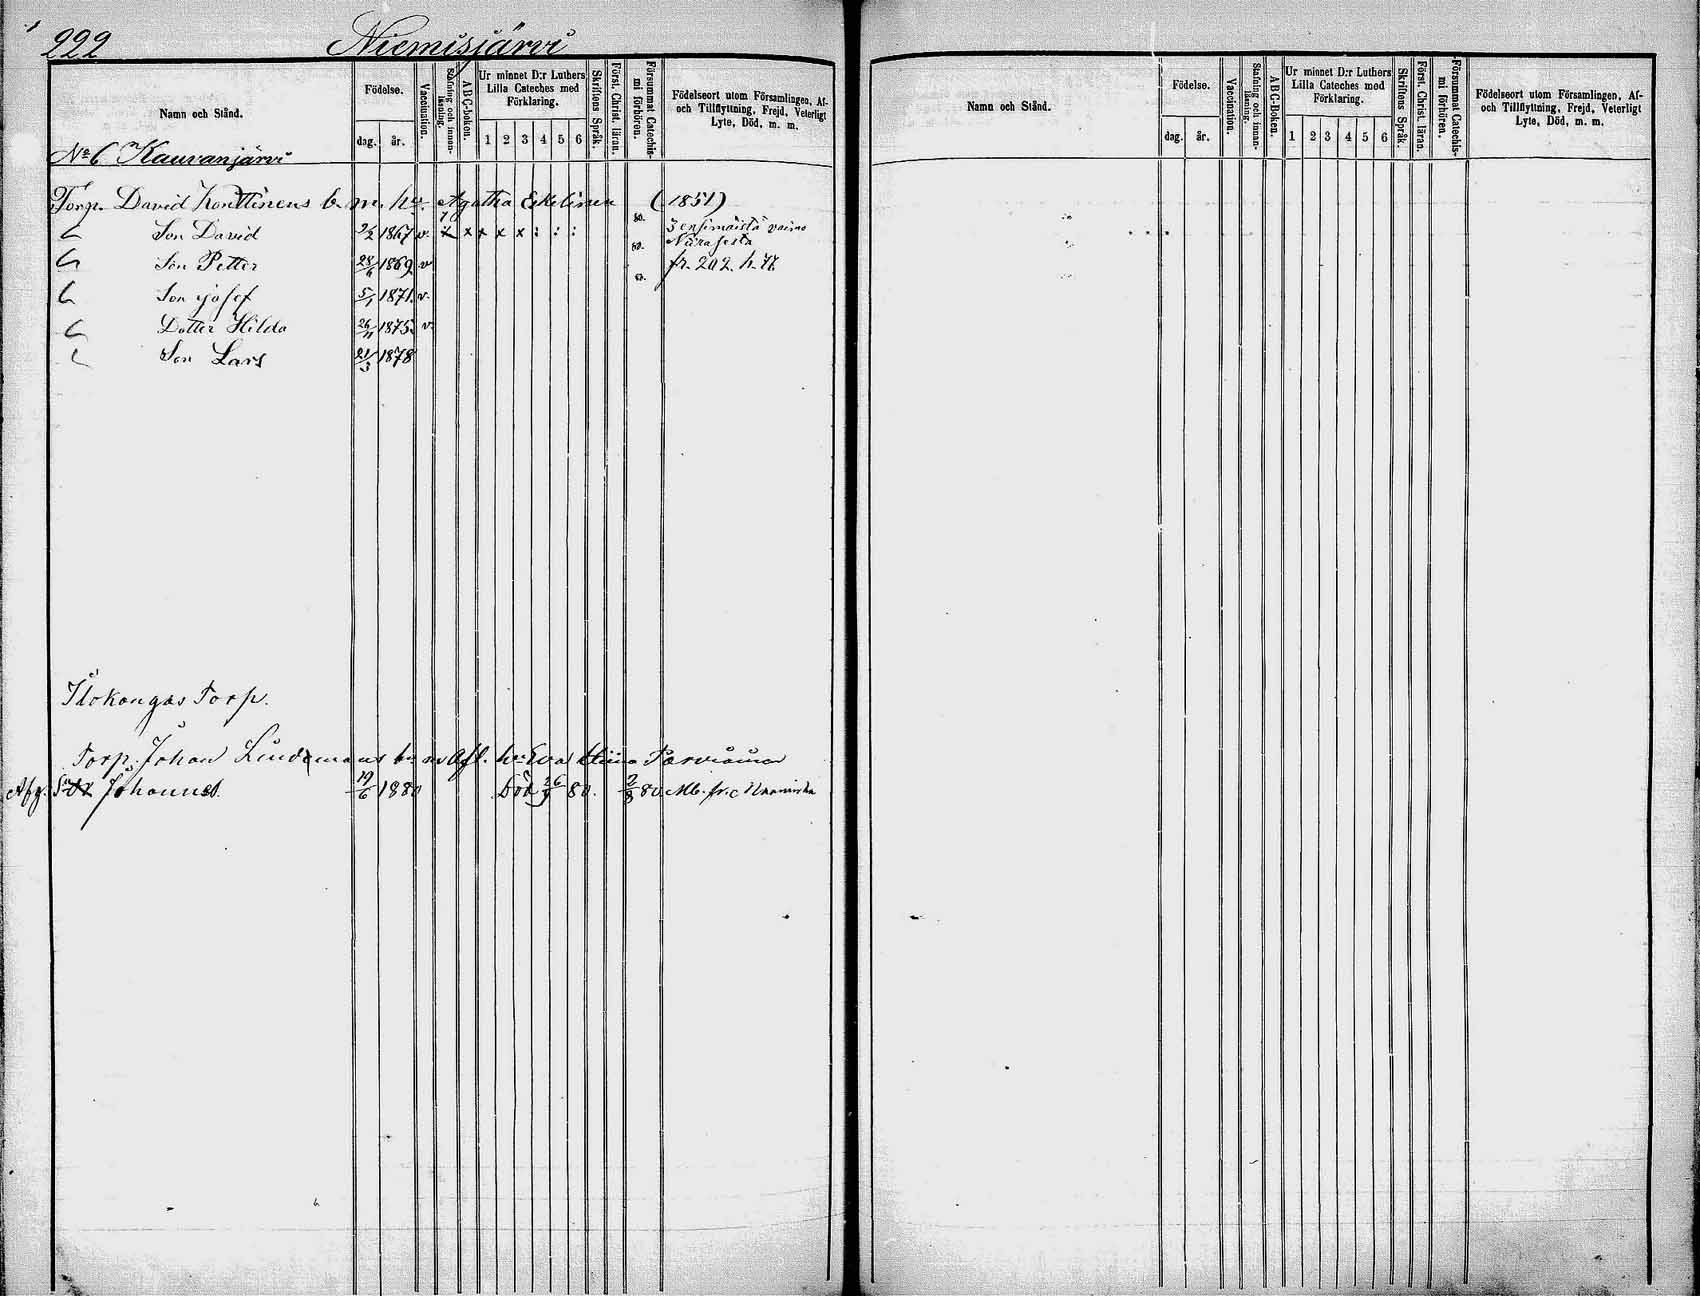 222 Niemisjärvi
Namn och Stånd.
Födelse.
dag. år.
Vaccination.
Stafning och innan-läsning.
ABC-boken.
Ur minnet D:r Luthers
Lilla Cateches med
Förklaring.
1 2 3 4 5 6
Skriftens Språk.
Först. Christ. läran.
Försummat Catechis-
mi förhören.
Födelseort utom Församlingen, Af-
och Tillflyttning, Frejd, Veterligt
Lyte, Död, m. m.
No 6 Kauvanjärvi
Torp. David Konttinens b. m. hu. Agatha Eskelinen (1851)
Son David 2/2 1867 v. x x x x x : : : 3 ensimäistä vaimo
Son Petter 28/6 1869 v fr. 202. h. 77
Son Josef 5/1 1871. v.
Dotter Hilda 26/11 1875 v.
Son Lars 21/3 1878
Ilokangas Torp.
Torp. Johan Lindemans bn m Afl. hu Eva
Afg. Johannes. 19/6 1880 Död 26/9 80. 2/8 80. Mb. fr.
Namn och Stånd.
Födelse.
dag. år.
Vaccination.
Stafning och innan-läsning.
ABC-Boken.
Ur minnet D:r Luthers
Lilla Cateches med
Förklaring.
1 2 3 4 5 6
Skriftens Språk.
Först. Christ. läran.
Försummat Catechis-
mi förhören.
Födelseort utom Församlingen, Af-
och Tillflyttning, Frejd, Veterligt
Lyte, Död, m. m.